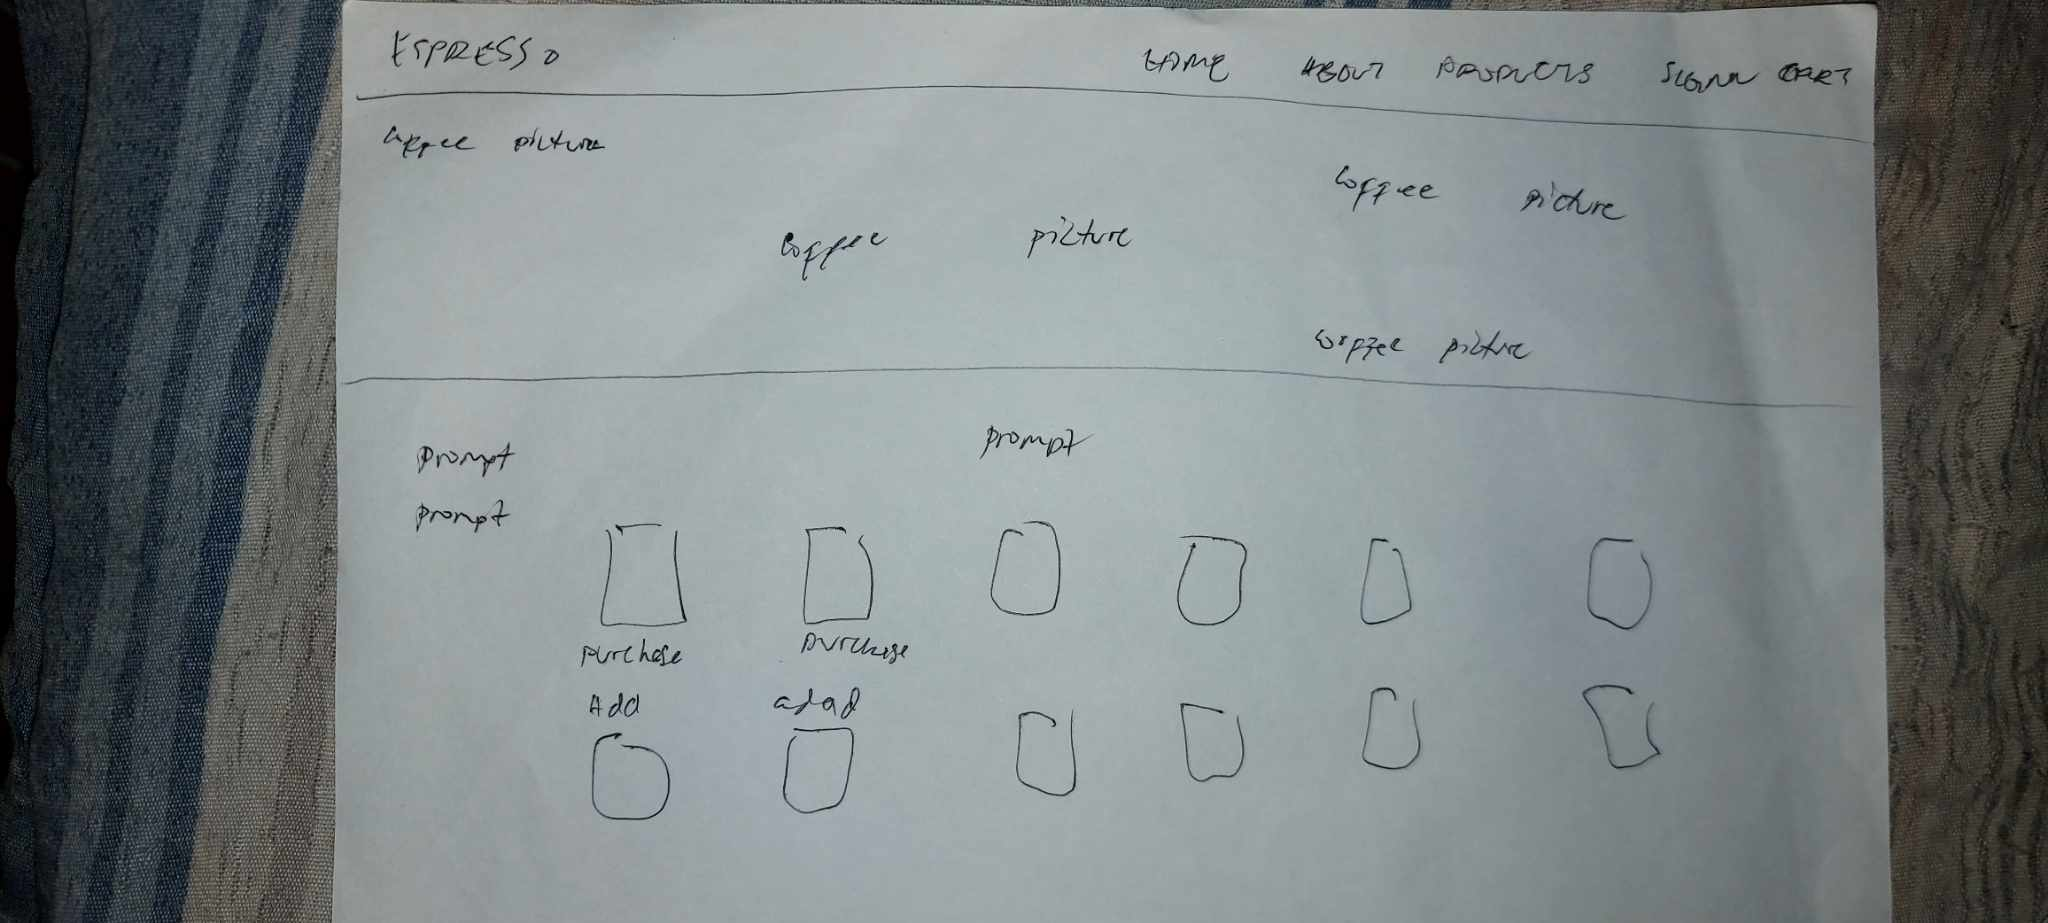 ESPRESSO
HOME ABOUT PRODUCTS SIGNIN CART
Coffee picture
Coffee picture
Coffee picture
Coffee picture
prompt
prompt
prompt
purchase purchase
Add